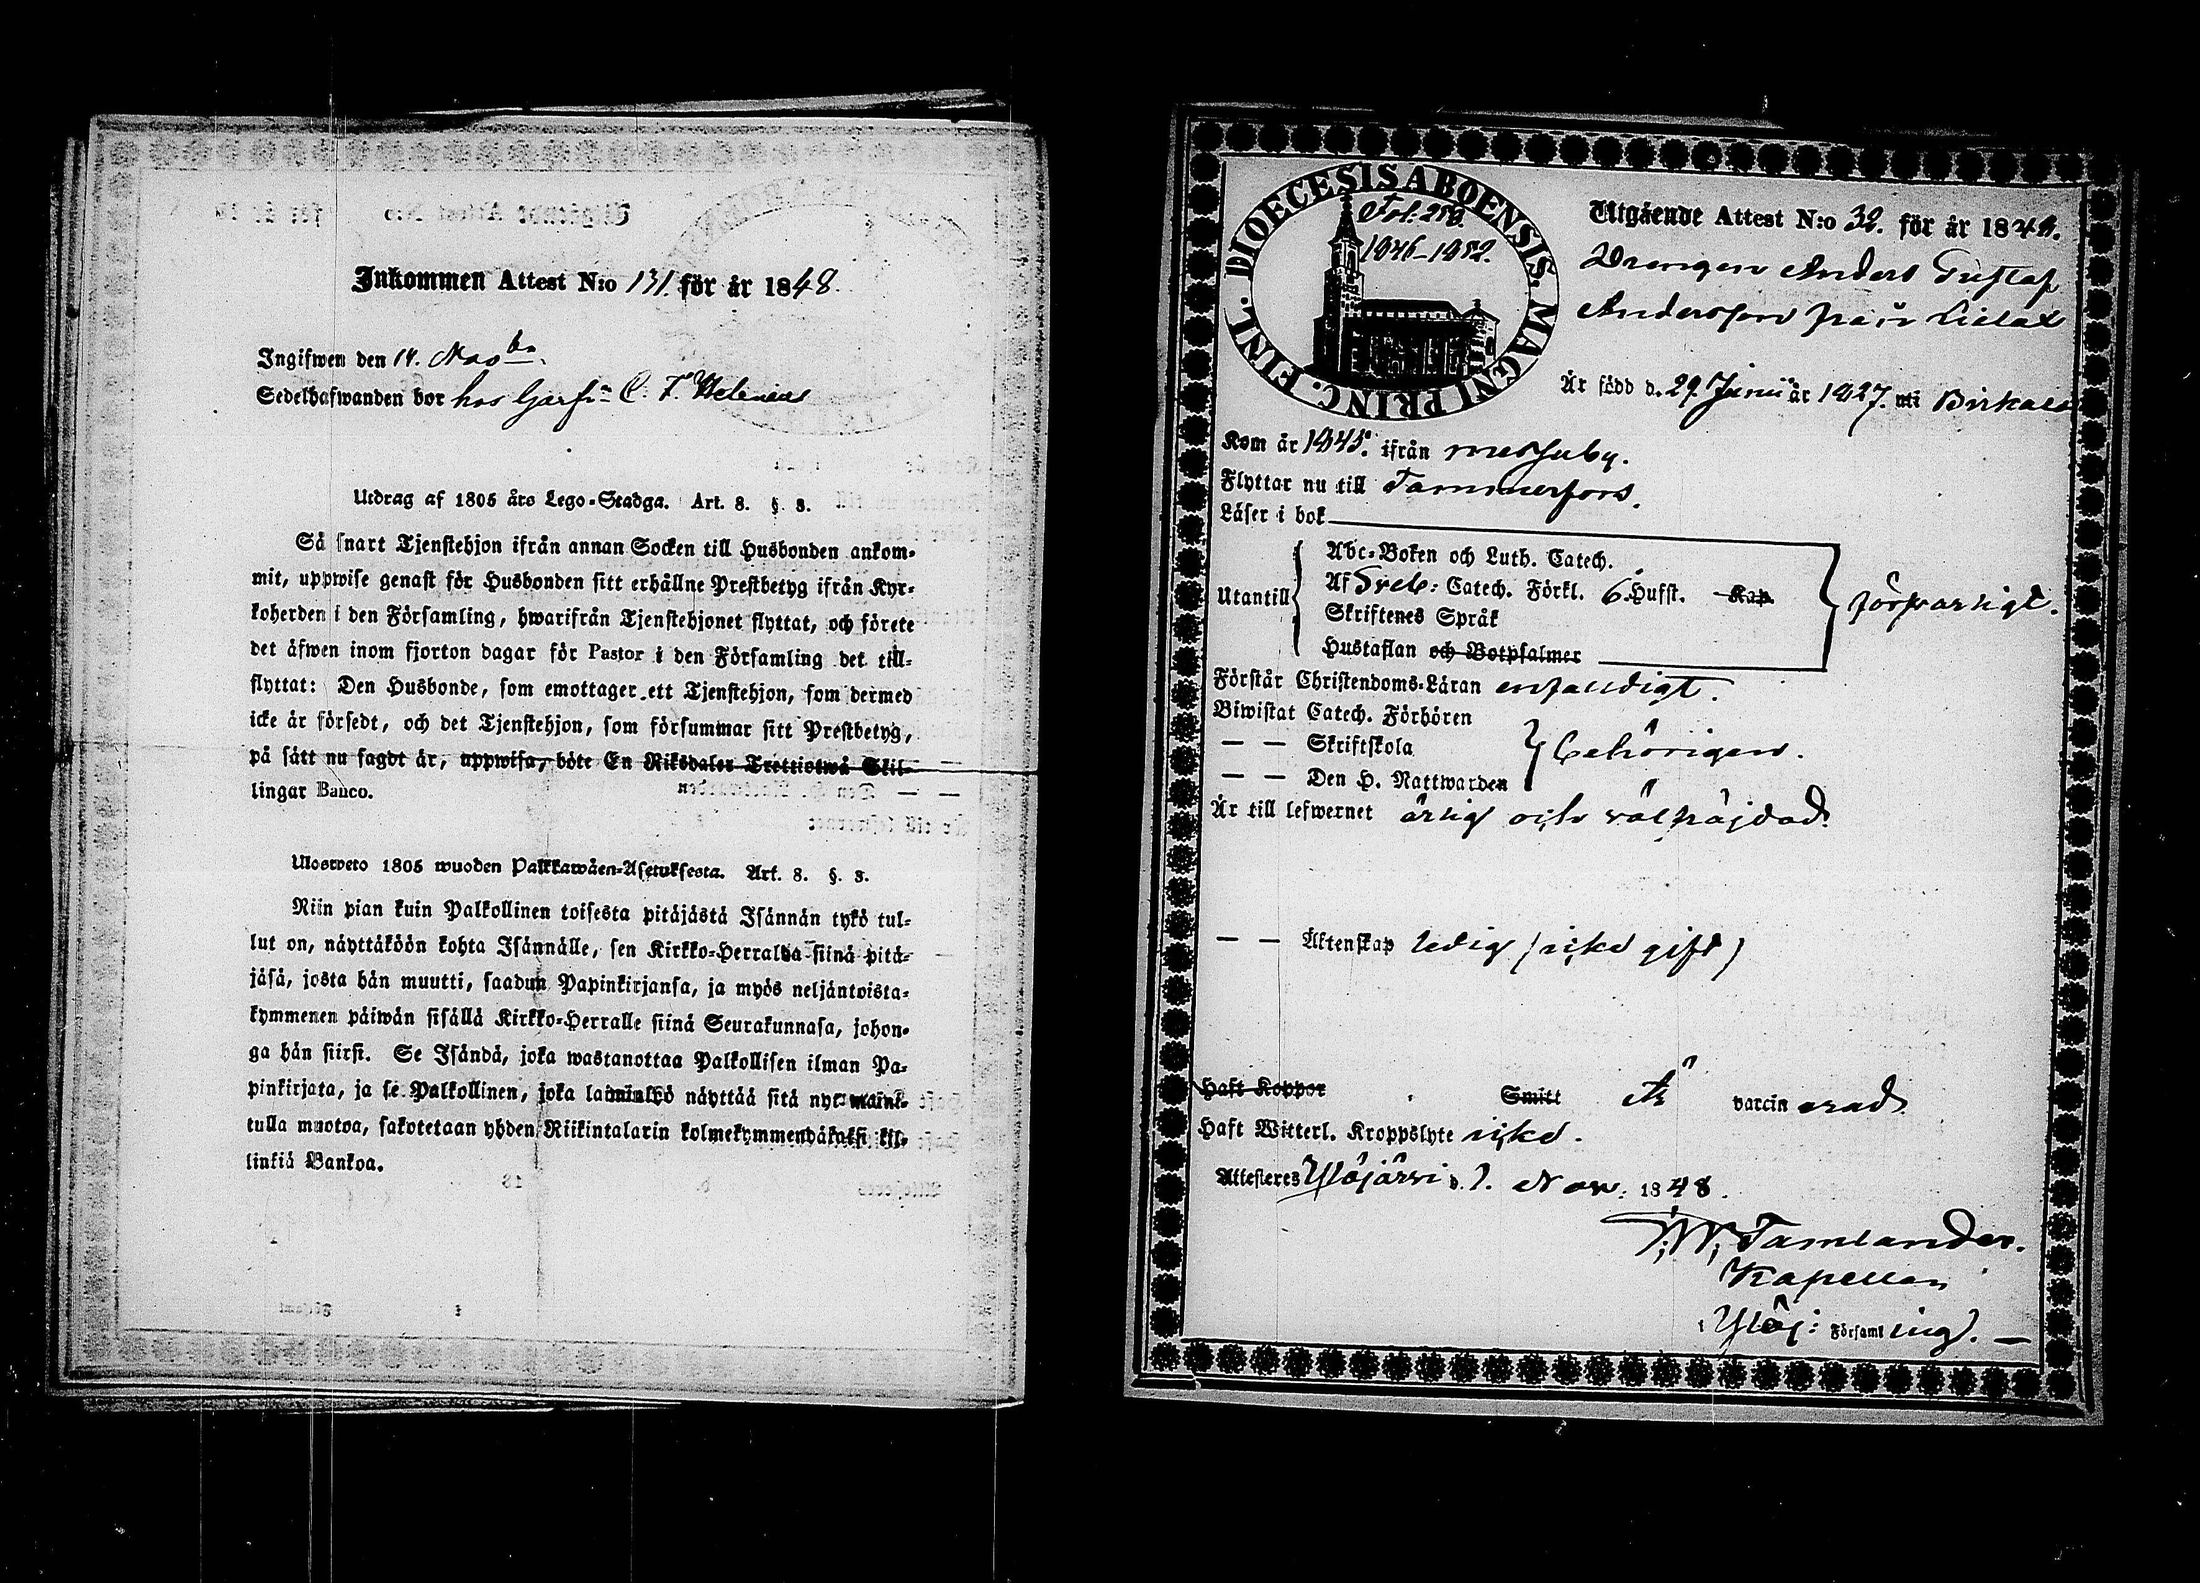 Inkommen Attest N:o 131. för år 1848.
Ingifwen den 14. Novbr.
Sedelhafwanden bor hos Garf: C. F. Helenius
Utdrag af 1805 års Lego-Stadga. Art. 8. §. 3.
Så snart Tjenstehjon ifrån annan Socken till Husbonden ankom-
mit, uppwise genast för Husbonden sitt erhållne Prestbetyg ifrån Kyr-
koherden i den Församling, hwarifrån Tjenstehjonet flyttat, och förete
det äfwen inom fjorton dagar för Pastor i den Församling det till-
flyttat: Den Husbonde, som emottager ett Tjenstehjon, som dermed
icke är försedt, och det Tjenstehjon, som försummar sitt Prestbetyg,
på sätt nu sagdt är, uppwisa, böte En Riksdaler Trettiotwå Skil-
lingar Banco.
Ulosweto 1805 wuoden Palkkawäen-Asetuksesta. Art. 8. §. 3.
Niin pian kuin Palkollinen toisesta pitäjästä Isännän tykö tul-
lut on, näyttäköön kohta Isännälle, sen Kirkko-Herralda siinä pitä-
jäsä, josta hän muutti, saadun Papinkirjansa, ja myös neljäntoista-
kymmenen päiwän sisällä Kirkko-Herralle siinä Seurakunnasa, johon-
ga hän siirsi. Se Isändä, joka wastanottaa Palkollisen ilman Pa-
pinkirjata, ja se Palkollinen, joka laiminlyö näyttää sitä nyt mainit-
tulla muotoa, sakotetaan yhden Riikintalarin kolmekymmendäkaksi kil-
linkiä Bankoa.
DIOECESIS ABOENSIS. MAGNI PRINC. FINL.
Fol. 259.
1846-1852.
Utgående Attest N:o 32. för år 1848.
Drengen Anders Gustaf
Andersson från Lielax
Är född d. 29. Junii år 1827. uti Birkala
Kom år 1845. ifrån Messuby.
Flyttar nu till Tammerfors.
Läser i bok
Utantill
Abc-Boken och Luth. Catech.
Af Sveb: Catech. Förkl. 6. Hufst. Kap
Skriftenes Språk
Hustaflan och Botpsalmer
försvarligt.
Förstår Christendoms-Läran enfaldigt.
Biwistat Catech. Förhören
— — Skriftskola
— — Den H. Nattwarden
behörigen.
Är till lefwernet ärlig och välfräjdad.
— — Äktenskap ledig (icke gift)
Haft Koppor Smitt Är vaccinerad.
Haft Witterl. Kroppslyte icke.
Attesteres Ylöjärvi d. 7. Nov. 1848.
Tamlander.
Kapellan
i Ylöj: Församling. —